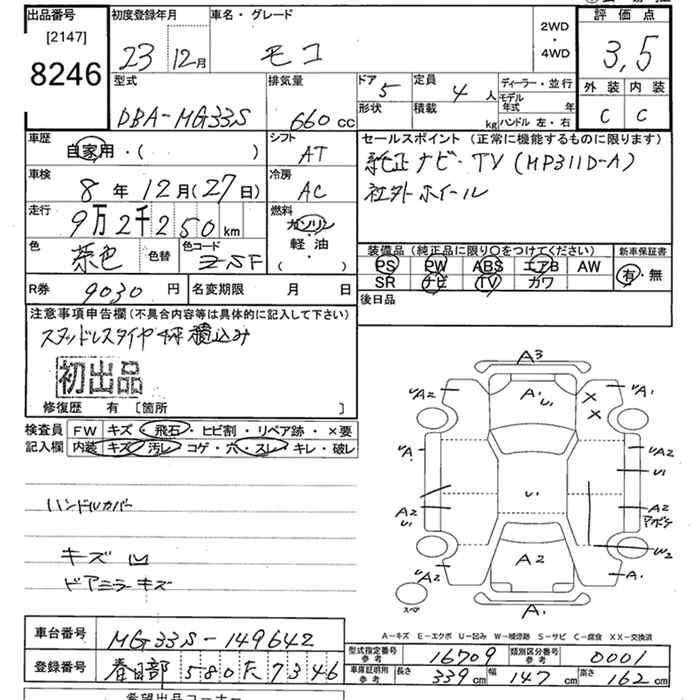 出品番号
[2147]
8246
初度登録年月
23 12月
車名・グレード
モコ
2WD
・
4WD
評価点
3,5
型式
DBA-MG33S
排気量
660 cc
ドア 5
定員 4 人
形状
積載 kg
ディーラー・並行
モデル年式 年
ハンドル 左・右
外装 内装
C C
車歴
自家用・( )
シフト
AT
車検
8年 12月(27日)
冷房
AC
走行
9万2千250km
燃料
ガソリン
・
軽油
・
( )
色
茶色
色替
色コード
Z5F
R券 9030 円
名変期限 月 日
セールスポイント(正常に機能するものに限ります)
純正ナビ・TV(MP311D-A)
社外ホイール
装備品(純正品に限り〇をつけてください)
PS PW ABS エアB AW
SR ナビ TV カワ
新車保証書
有・無
後日品
注意事項申告欄(不具合内容等は具体的に記入して下さい)
スタッドレスタイヤ4本積込み
初出品
修復歴 有 [箇所 ]
検査員
記入欄
FW キズ・飛石・ヒビ割・リペア跡・×要
内装 キズ・汚レ・コゲ・穴・スレ・キレ・破レ
ハンドルカバー
キズ 凹
ドアミラーキズ
A3
UA2 A' U1 X X UA'
UA' UA2
U1 U1
A2 U1 A2
W2
UA2 A2 A'
スペア
A'
A-キズ E-エクボ U-凹み W-補修跡 S-サビ C-腐食 XX-交換済
車台番号 MG33S-149642
登録番号 春日部 580 た 7346
型式指定番号
参考
16709
類別区分番号
参考
0001
車庫証明用
参考
長さ 339 cm 幅 147 cm 高さ 162 cm
希望出品コーナー